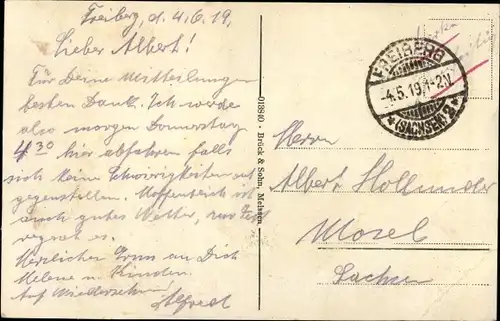 Freiberg, d. 4.6.19.
Lieber Albert!
Für Deine Mitteilungen
besten Dank. Ich werde
also morgen Donnerstag
4.30 hier abfahren falls
sich keine Schwierigkeiten
gegenstellen. Hoffentlich ist
auch gutes Wetter,
regnet es.
Herzlichen Gruss an Dich
Helene u. Kinder.
Auf Wiedersehen
Alfred
013840 · Brück & Sohn, Meissen.
FREIBERG
-4.6.19.1-2N.
* (SACHSEN) 2 *
Herrn
Albert Hollunder
Mosel
Sachsen